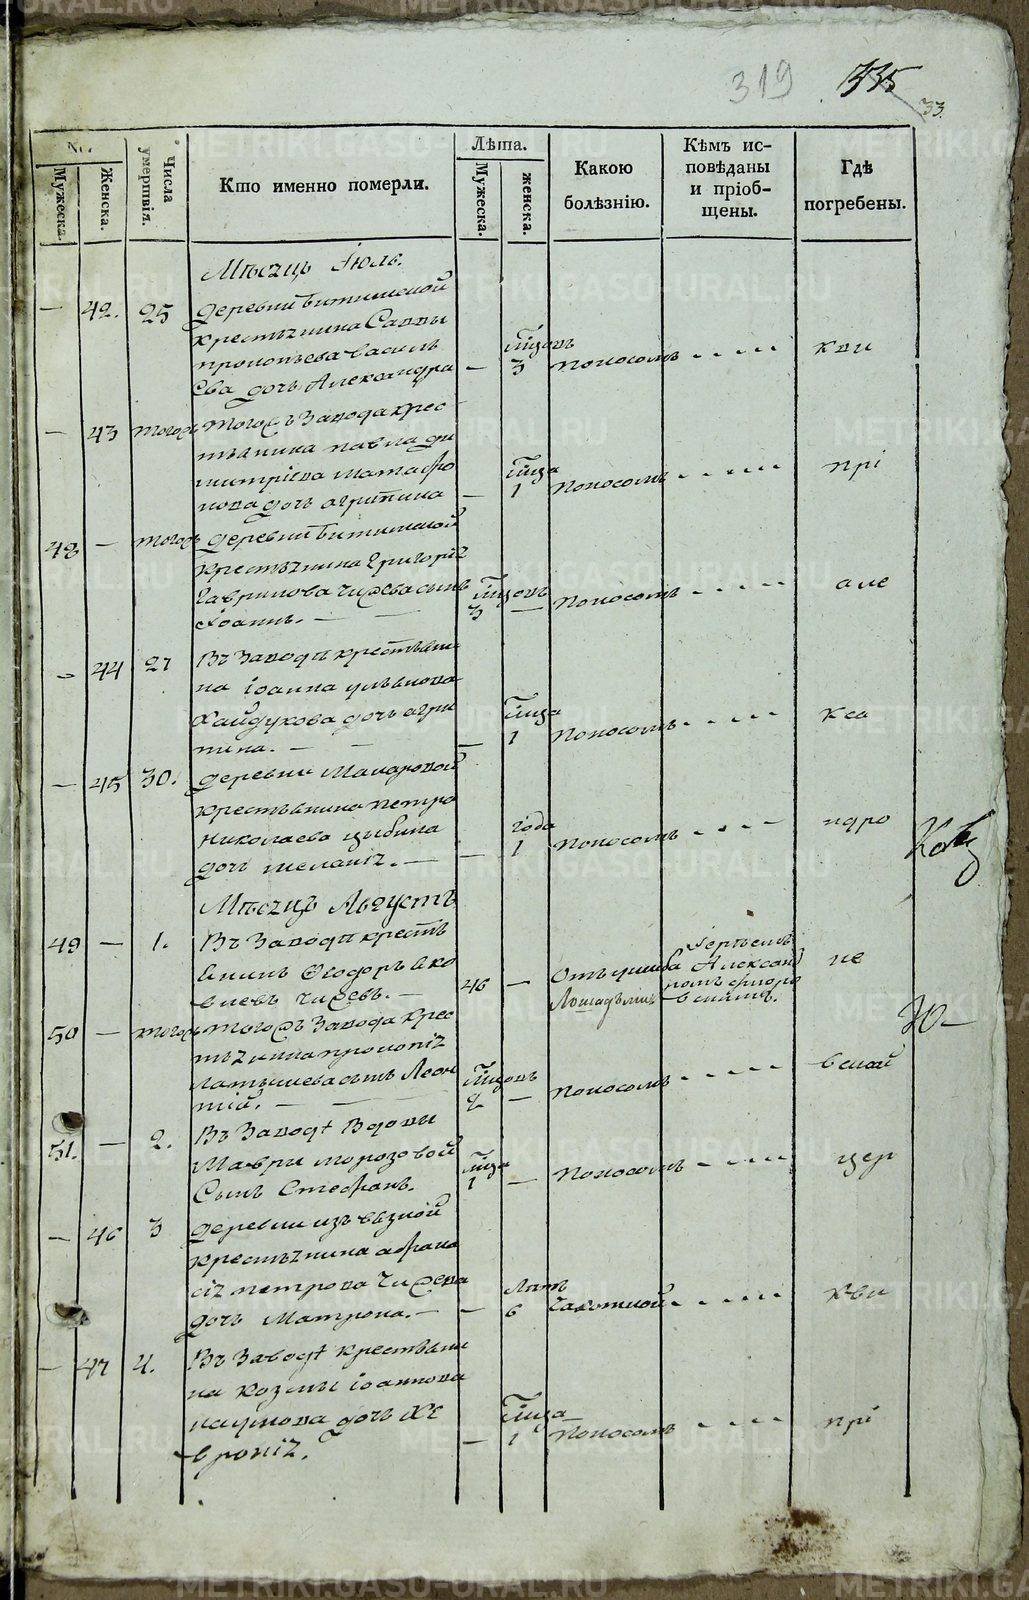 319 335
33.
№.
Мужеска.
Женска.
Числа умертвія.
Кто именно померли.
Лѣта.
Мужеска.
женска.
Какою болѣзнію.
Кѣмъ исповѣданы и пріобщены.
Гдѣ погребены.
Мѣсяцъ Іюль.
— 42. 25 деревни
крестьянина Саввы
прокопьева василь
ева дочь Александра — 3 поносомъ кви
— 43 тогожъ тогожъ Завода крес
тьянина павла ди
митріева матафо
нова дочь агрипина — 1 поносомъ прі
48 — тогожъ деревни
крестьянина Григорія
Гаврилова сынъ
Іоаннъ. — 3 — поносомъ але
— 44 27 Въ Заводѣ крестьяни
на іоанна ульянова
Хайдукова дочь агри
пина. — — 1 поносомъ кса
— 45 30. деревни Макаровой
крестьянина петра
Николаева цыбина
дочь меланія. — — года 1 поносомъ ндро
Мѣсяцъ Августъ
49 — 1. Въ Заводѣ кресть
янинъ Ѳеодоръ яко
влевъ — 46 — Отъ ушиба Лошадьми Іереемъ Александромъ не
50 — тогожъ тогожъ Завода крес
тьянина прокопія
латышева сынъ Леон
тій. — 2 — поносомъ вской
51. — 2. Въ Заводѣ Вдовы
Мавры морозовой
Сынъ Стефанъ. 1 — поносомъ цер
— 46 3 деревни
крестьянина афана
сія петрова
дочь Матрона. — — лѣтъ 6 Чахоткой кви
— 47 4. Въ Заводѣ крестьяни
на козмы іоаннова
наумова дочь хе
вронія. — 1 поносомъ прі
METRIKI.GASO-URAL.RU